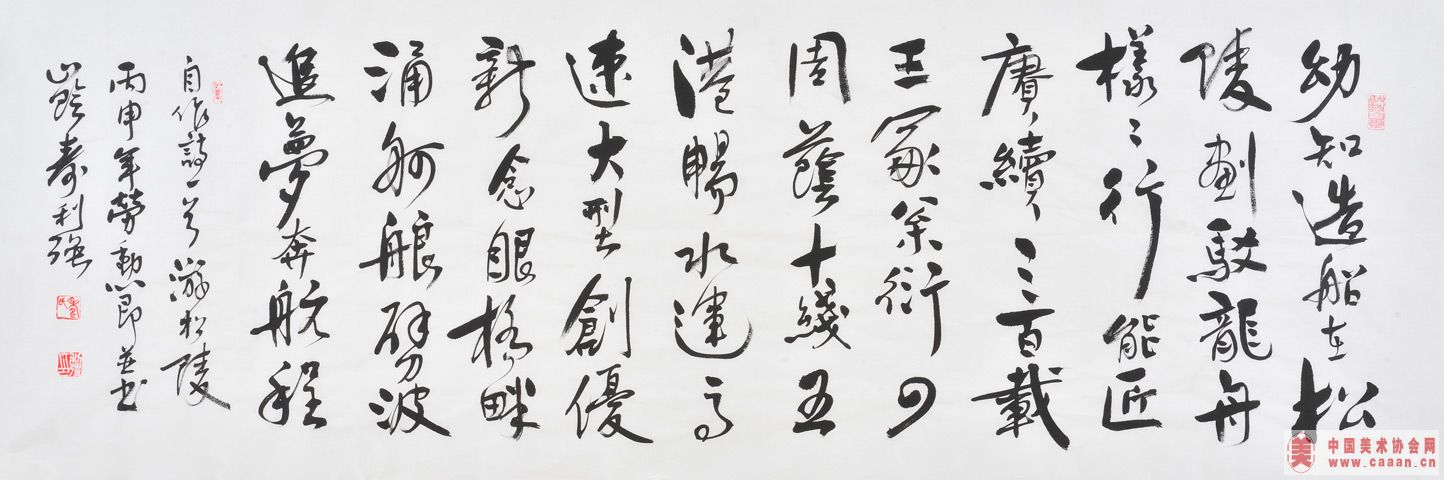 幼知造船在松
陵劃馭龍舟
樣〻行能匠
賡續三百載
王家業衍四
周蔭十綫五
港暢水運高
速大型創優
新念眼格畔
涌舸艆劈波
追夢奔航程
自作詩一首游松陵
丙申年勞動節並書
山陰壽利強
中国美术协会网
www.caaan.cn
美